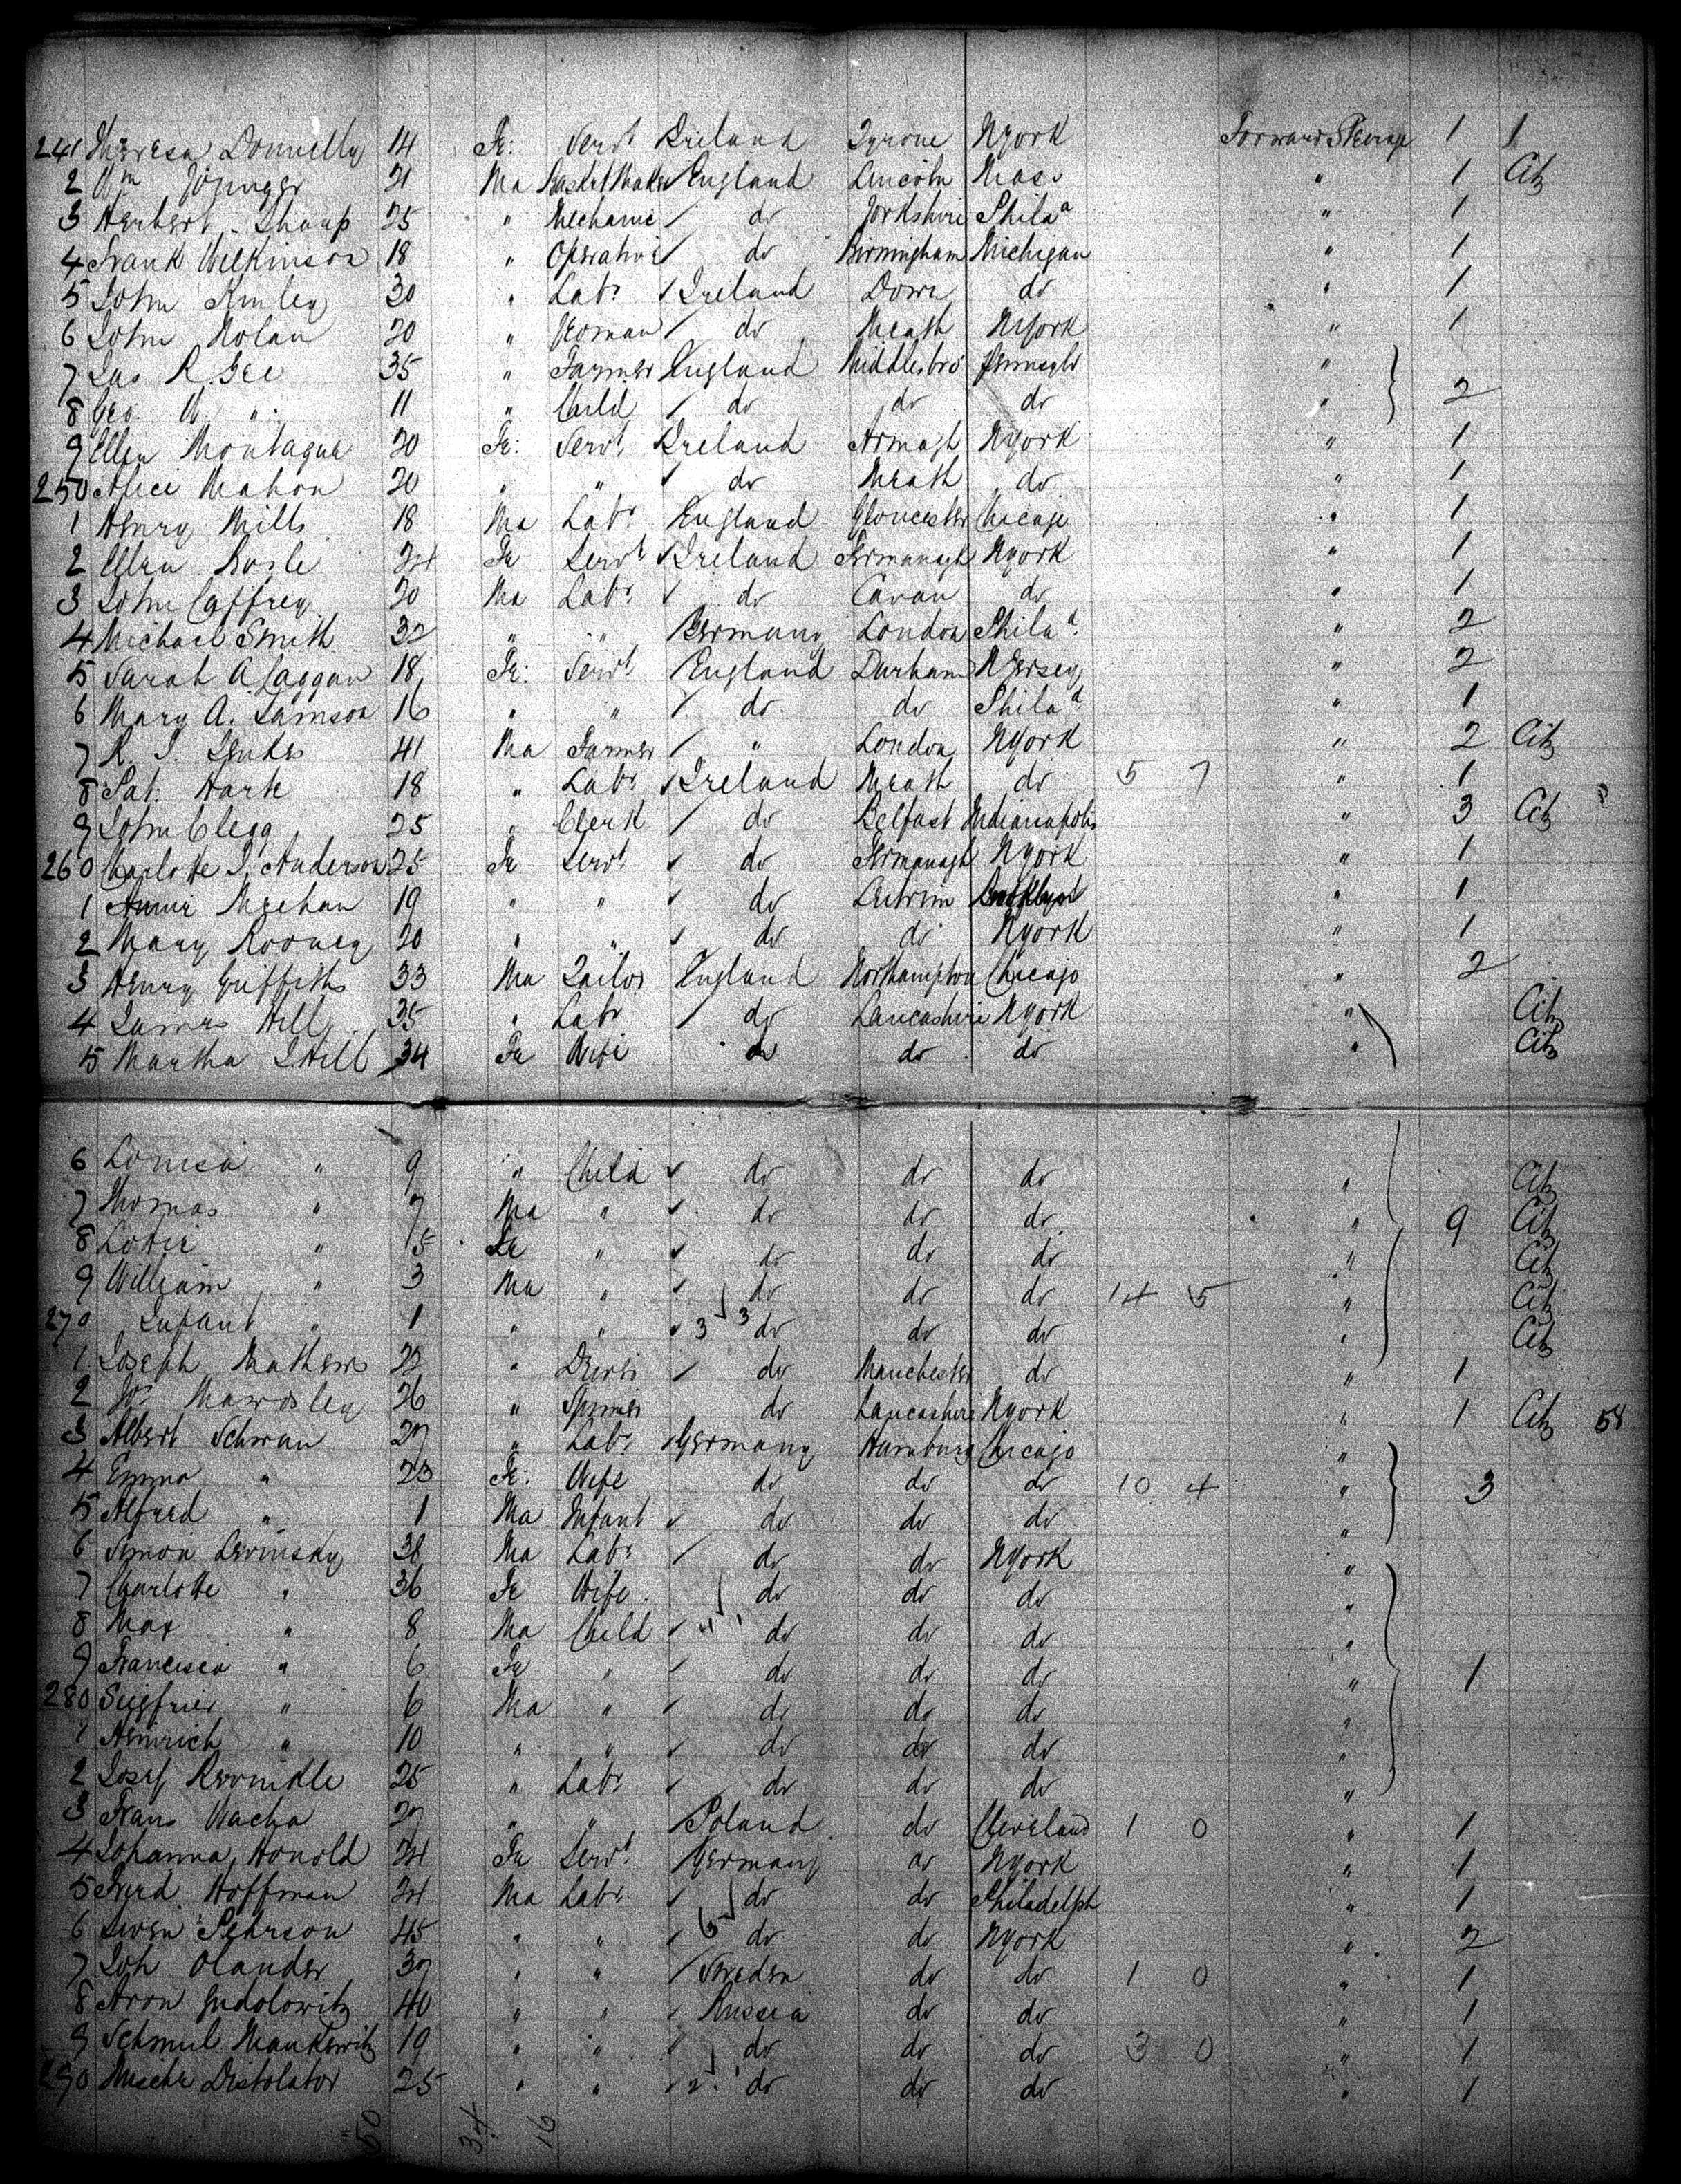 241 Theresa Donnelly 14 Fe: Servt Ireland Tyrone NYork Forward Steerage 1 1
2 Wm 21 Ma Basket Maker England Lincoln Mass " 1 Citz
3 Herbert Sharp 25 " Mechanic do Yorkshire Phila " 1
4 Frank Wilkinson 18 " Operative do Birmingham Michigan " 1
5 John Kinley 30 " Labr Ireland Down do " 1
6 John Nolan 20 " Yeoman do Meath NYork " 1
7 Jas R. Gee 35 " Farmer England Middlesbro "
8 Geo. W. " 11 " Child do do do " 2
9 Ellen Montague 20 Fe: Servt Ireland Armagh NYork " 1
250 Alice Mahon 20 " " do Meath do " 1
1 Henry Mills 18 Ma Labr England Gloucester Chicago " 1
2 Ellen 24 Fe Servt Ireland Fermanagh NYork " 1
3 John Caffrey 20 Ma Labr do Cavan do " 1
4 Michael Smith 32 " " Germany London Phila " 2
5 Sarah A 18 Fe: Servt England Durham NJersey " 2
6 Mary A. Lamson 16 " " do do Phila " 1
7 R. J. 41 Ma Farmer " London NYork " 2 Citz
8 Pat: Harte 18 " Labr Ireland Meath do 5 7 " 1
9 John Clegg 25 " Clerk do Belfast Indianapolis " 3 Citz
260 Charlotte J. Anderson 25 Fe Servt do Fermanagh NYork " 1
1 Annie Meehan 19 " " do Leitrim Brooklyn " 1
2 Mary Rooney 20 " " do do NYork " 1
3 Henry Griffiths 33 Ma Tailor England Northampton Chicago " 2
4 James Hill 35 " Labr do Lancashire NYork " Citz
5 Martha Hill 34 Fe Wife do do do " Citz
6 Louisa " 9 " Child do do do " Citz
7 Thomas " 7 Ma " do do do " 9 Citz
8 Lottie " 5 Fe " do do do " Citz
9 William " 3 Ma " do do do 14 5 " Citz
270 Infant " 1 " " 3 3 do do do " Citz
1 Joseph Mathews 22 " do Manchester do " 1
2 Mawdsley 26 " Spinner do Lancashire NYork " 1 Citz 58
3 Albert Schwan 27 " Labr Germany Hamburg Chicago "
4 Emma " 23 Fe: Wife do do do 10 4 " 3
5 Alfred " 1 Ma Infant do do do "
6 Simon Levinsky 38 Ma Labr do do NYork "
7 Charlotte " 36 Fe Wife do do do "
8 Max " 8 Ma Child 4 1 do do do "
9 Francisca " 6 Fe " do do do " 1
280 Siegfried " 6 Ma " do do do "
1 Heinrich " 10 " " do do do "
2 Josef 25 " Labr do do do "
3 Frans Wacha 27 " " Poland do Cleveland 1 0 " 1
4 Johanna Honold 24 Fe Servt Germany do NYork " 1
5 Ferd Hoffman 24 Ma Labr do do Philadelph " 1
6 Swen Pehrson 45 " " 5 do do NYork " 2
7 Joh Olander 37 " " Sweden do do 1 0 " 1
8 Aron 40 " " Russia do do " 1
9 Schmul 19 " " do do do 3 0 " 1
290 Distolator 25 " " 2 do do do " 1
50 34 16